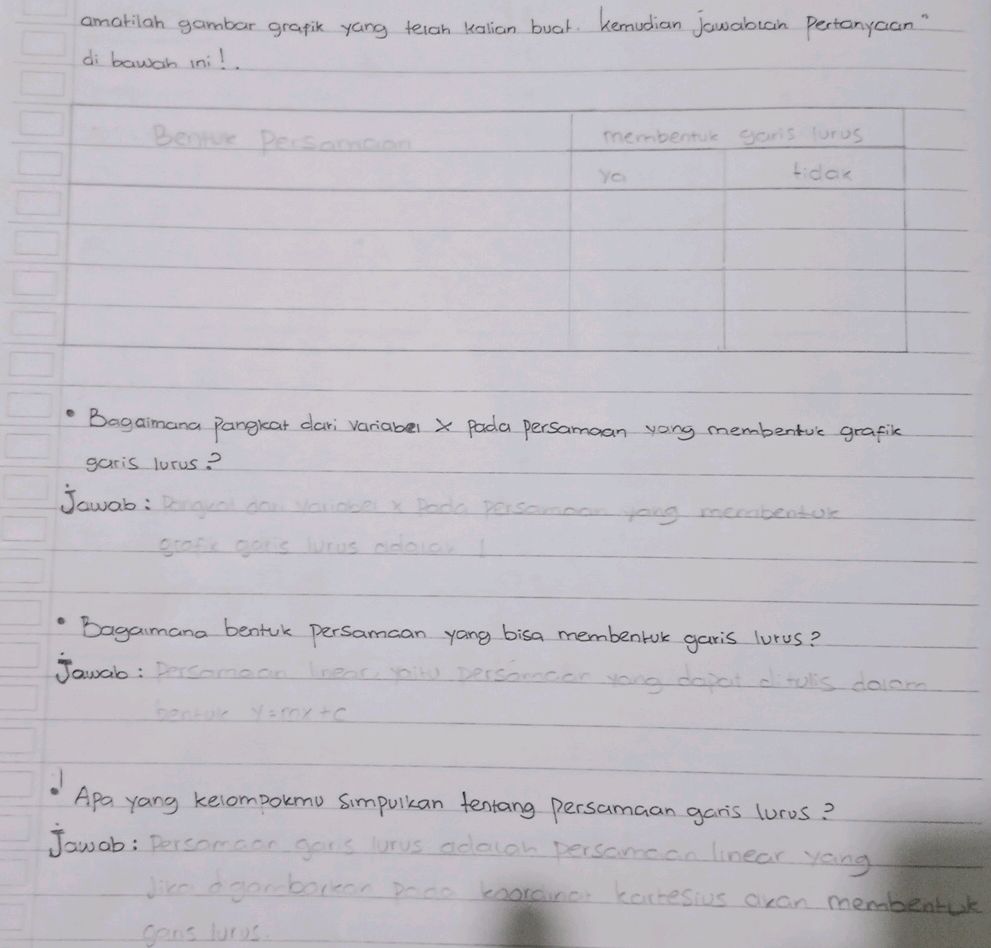 amatilah gambar grafik yang telah kalian buat. kemudian jawablah Pertanyaan"
di bawah ini!.
Bentuk Persamaan
membentuk garis lurus
ya tidak
• Bagaimana pangkat dari variabel x pada persamaan yang membentuk grafik
garis lurus?
Jawab: Pangkat dari variabel x pada persamaan yang membentuk
grafik garis lurus adalah 1
• Bagaimana bentuk persamaan yang bisa membentuk garis lurus?
Jawab: Persamaan linear, yaitu persamaan yang dapat ditulis dalam
bentuk y=mx+c
• Apa yang kelompokmu simpulkan tentang persamaan garis lurus?
Jawab: Persamaan garis lurus adalah persamaan linear yang
jika digambarkan pada koordinat kartesius akan membentuk
garis lurus.